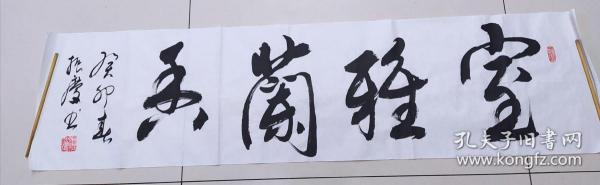 室雅蘭香
癸卯春
振慶书
孔夫子旧书网
www.kongfz.com